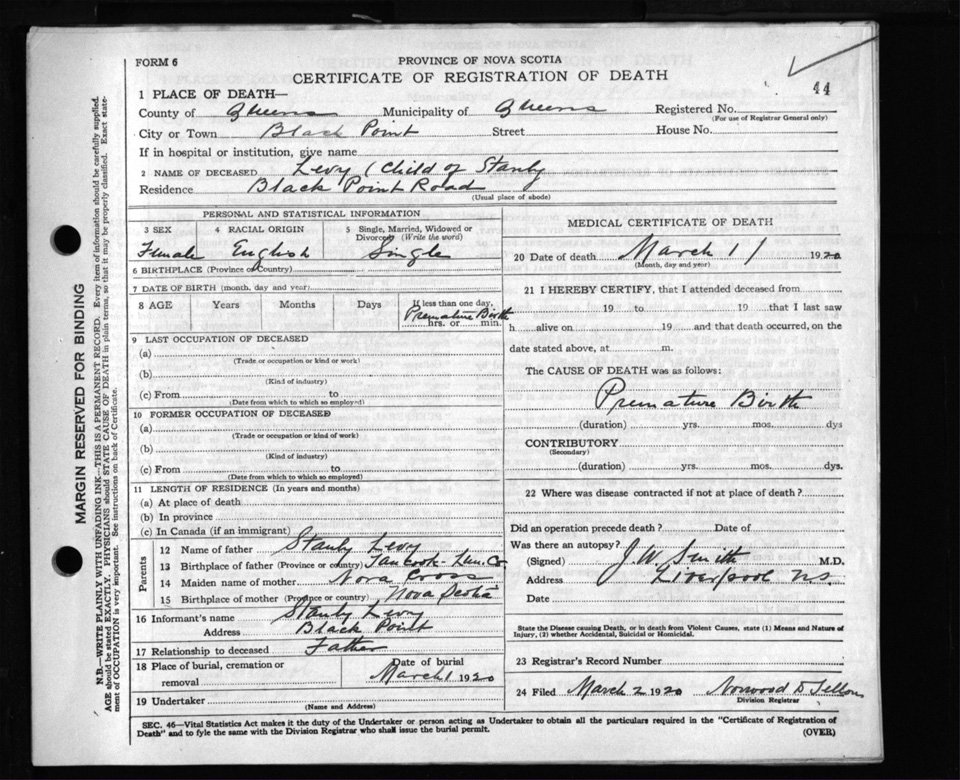 FORM 6
PROVINCE OF NOVA SCOTIA
CERTIFICATE OF REGISTRATION OF DEATH
44
1 PLACE OF DEATH—
County of Queens Municipality of Queens Registered No.
(For use of Registrar General only)
City or Town Black Point Street House No.
If in hospital or institution, give name
2 NAME OF DECEASED Levy (Child of Stanly
Residence Black Point Road
(Usual place of abode)
PERSONAL AND STATISTICAL INFORMATION
3 SEX 4 RACIAL ORIGIN 5 Single, Married, Widowed or Divorced (Write the word)
Female English Single
6 BIRTHPLACE (Province or Country)
7 DATE OF BIRTH (month, day and year)
8 AGE Years Months Days If less than one day,
Premature Birth
hrs. or min.
9 LAST OCCUPATION OF DECEASED
(a)
(Trade or occupation or kind or work)
(b)
(Kind of industry)
(c) From to
(Date from which to which so employed)
10 FORMER OCCUPATION OF DECEASED
(a)
(Trade or occupation or kind of work)
(b)
(Kind of industry)
(c) From to
(Date from which to which so employed)
11 LENGTH OF RESIDENCE (In years and months)
(a) At place of death
(b) In province
(c) In Canada (if an immigrant)
Parents
12 Name of father Stanly Levy
13 Birthplace of father (Province or country) Tancook - Lun. Co.
14 Maiden name of mother Nora Cross
15 Birthplace of mother (Province or country) Nova Scotia
16 Informant's name Stanly Levy
Address Black Point
17 Relationship to deceased Father
18 Place of burial, cremation or removal Date of burial
March 1 1920
19 Undertaker
(Name and Address)
MEDICAL CERTIFICATE OF DEATH
20 Date of death March 1 / 1920
(Month, day and year)
21 I HEREBY CERTIFY, that I attended deceased from
19 to 19 that I last saw
h alive on 19 and that death occurred, on the
date stated above, at m.
The CAUSE OF DEATH was as follows:
Premature Birth
(duration) yrs. mos. dys
CONTRIBUTORY
(Secondary)
(duration) yrs. mos. dys.
22 Where was disease contracted if not at place of death?
Did an operation precede death? Date of
Was there an autopsy?
(Signed) J. W. Smith M.D.
Address Liverpool NS
Date
State the Disease causing Death, or in death from Violent Causes, state (1) Means and Nature of
Injury, (2) whether Accidental, Suicidal or Homicidal.
23 Registrar's Record Number
24 Filed March 2 1920 Norwood D
Division Registrar
SEC. 46—Vital Statistics Act makes it the duty of the Undertaker or person acting as Undertaker to obtain all the particulars required in the "Certificate of Registration of
Death" and to fyle the same with the Division Registrar who shall issue the burial permit.
(OVER)
MARGIN RESERVED FOR BINDING
N.B.—WRITE PLAINLY WITH UNFADING INK—THIS IS A PERMANENT RECORD. Every item of information should be carefully supplied.
AGE should be stated EXACTLY. PHYSICIANS should STATE CAUSE OF DEATH in plain terms, so that it may be properly classified. Exact state-
ment of OCCUPATION is very important. See instructions on back of Certificate.